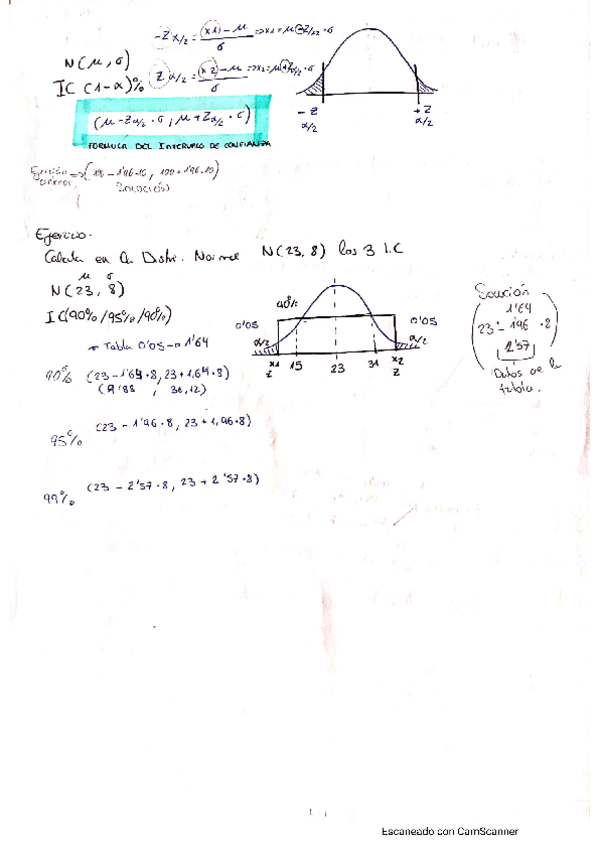 -Z α/2 = (x1) - μ / σ => x1 = μ - Z α/2 · σ
N(μ, σ)
Z α/2 = (x2) - μ / σ => x2 = μ + Z α/2 · σ
IC (1-α)%
(μ - Z α/2 · σ ; μ + Z α/2 · σ)
- Z α/2
+ Z α/2
FORMULA DEL INTERVALO DE CONFIANZA
Ejercicio => (100 - 1'96·10, 100 + 1'96·10)
Solución
Ejercicio.
Calcula en la Distri. Normal N(23, 8) los 3 I.C
μ σ
N(23, 8)
IC(90%/95%/99%)
Tabla 0'05 → 1'64
90% (23 - 1'64·8, 23 + 1,64·8)
(9'88 , 36,12)
95% (23 - 1'96·8, 23 + 1,96·8)
99% (23 - 2'57·8, 23 + 2'57·8)
90%
0'05
0'05
α/2
α/2
x1 15 23 31 x2
Z Z
Solución
1'64
23 - 1'96 · 8
2'57
Datos de la
tabla.
Escaneado con CamScanner